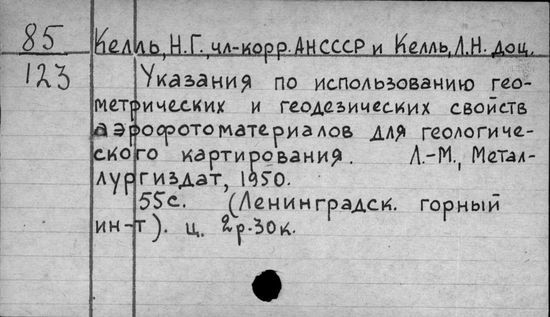 85
123
Келль, Н.Г., чл-корр. АНСССР и Келль, Л.Н. доц.
Указания по использованию гео-
метрических и геодезических свойств
аэрофотоматериалов для геологиче-
ского картирования. Л.-М., Метал-
лургиздат, 1950.
55с. (Ленинградск. горный
ин-т). ц. 2р.30к.